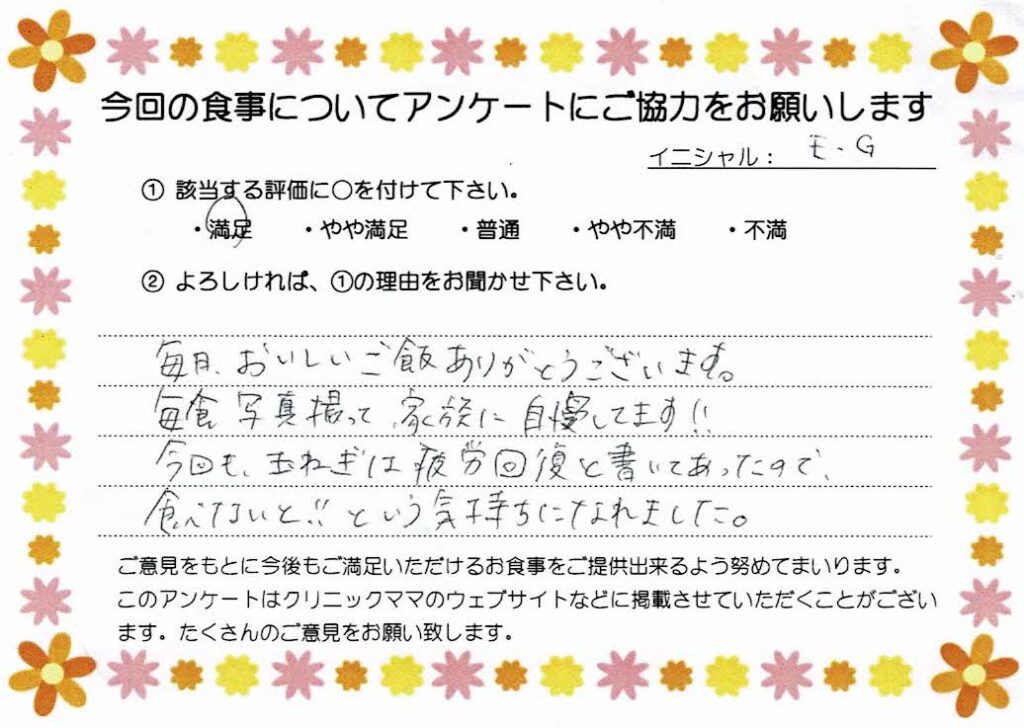 今回の食事についてアンケートにご協力をお願いします
イニシャル： E．G
① 該当する評価に○を付けて下さい。
・満足 ・やや満足 ・普通 ・やや不満 ・不満
② よろしければ、①の理由をお聞かせ下さい。
毎日、おいしいご飯ありがとうございます。
毎食写真撮って、家族に自慢してます!!
今回も、玉ねぎは疲労回復と書いてあったので、
食べないと!!という気持ちになれました。
ご意見をもとに今後もご満足いただけるお食事をご提供出来るよう努めてまいります。
このアンケートはクリニックママのウェブサイトなどに掲載させていただくことがござい
ます。たくさんのご意見をお願い致します。